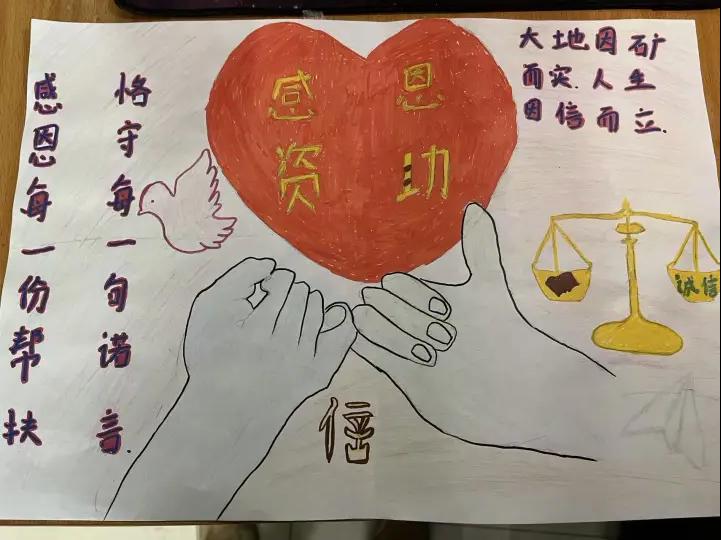 感恩每一份帮扶
恪守每一句诺言.
感恩
资助
大地因矿
而灾.人生
因信而立.
诚信
信